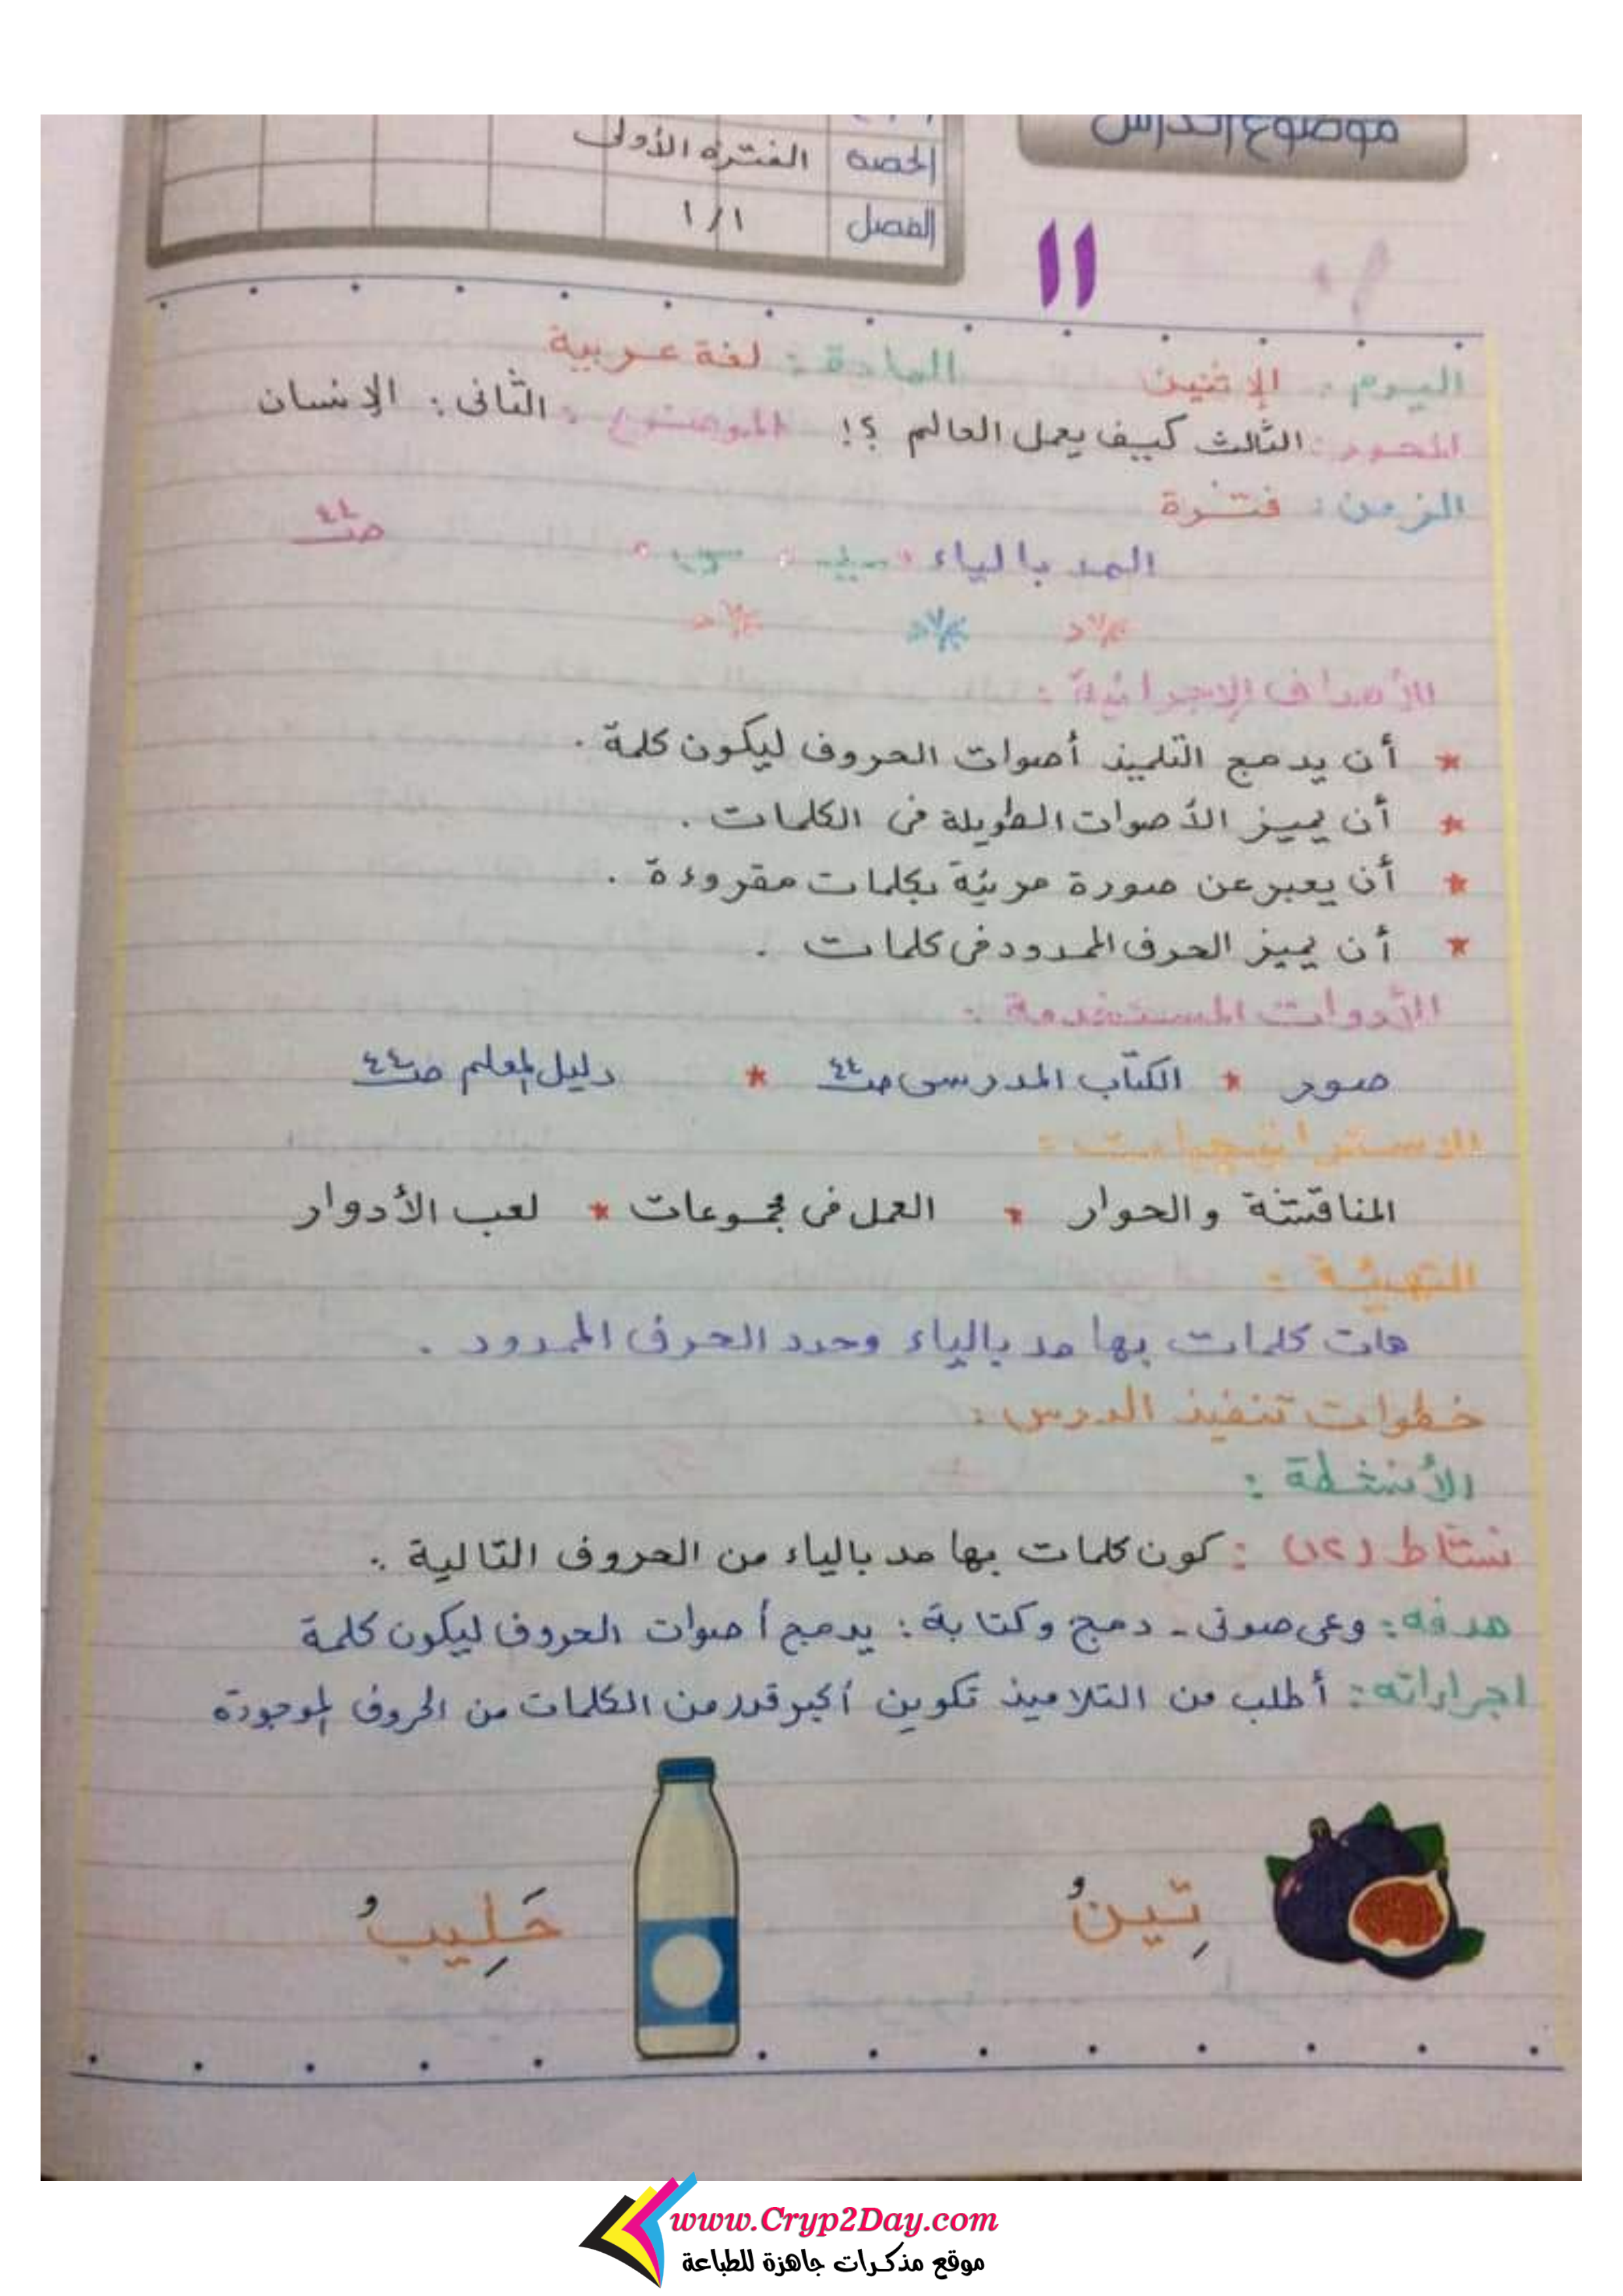 موضوع الدرس
الحصة الفترة الأولى
الفصل ١/١
١١
اليوم : الإثنين المادة : لغة عربية
المحور : الثالث كيف يعمل العالم ؟! الموضوع : الثانى : الإنسان
الزمن : فترة
المد بالياء ص٤٤
الأهداف الإجرائية :
* أن يدمج التلميذ أصوات الحروف ليكون كلمة .
* أن يميز الأصوات الطويلة فى الكلمات .
* أن يعبر عن صورة مرئية بكلمات مقروءة .
* أن يميز الحرف الممدود فى كلمات .
الأدوات المستخدمة :
صور * الكتاب المدرسى ص٤٤ * دليل المعلم ص٤٤
الاستراتيجيات :
المناقشة والحوار * العمل فى مجموعات * لعب الأدوار
التهيئة :
هات كلمات بها مد بالياء وحدد الحرف الممدود .
خطوات تنفيذ الدرس :
الأنشطة :
نشاط (١٢) : كون كلمات بها مد بالياء من الحروف التالية .
هدفه : وعى صوتى - دمج وكتابة : يدمج أصوات الحروف ليكون كلمة
اجراءاته : أطلب من التلاميذ تكوين أكبر قدر من الكلمات من الحروف الموجودة
تِينُ حَلِيبُ
www.Cryp2Day.com
موقع مذكرات جاهزة للطباعة